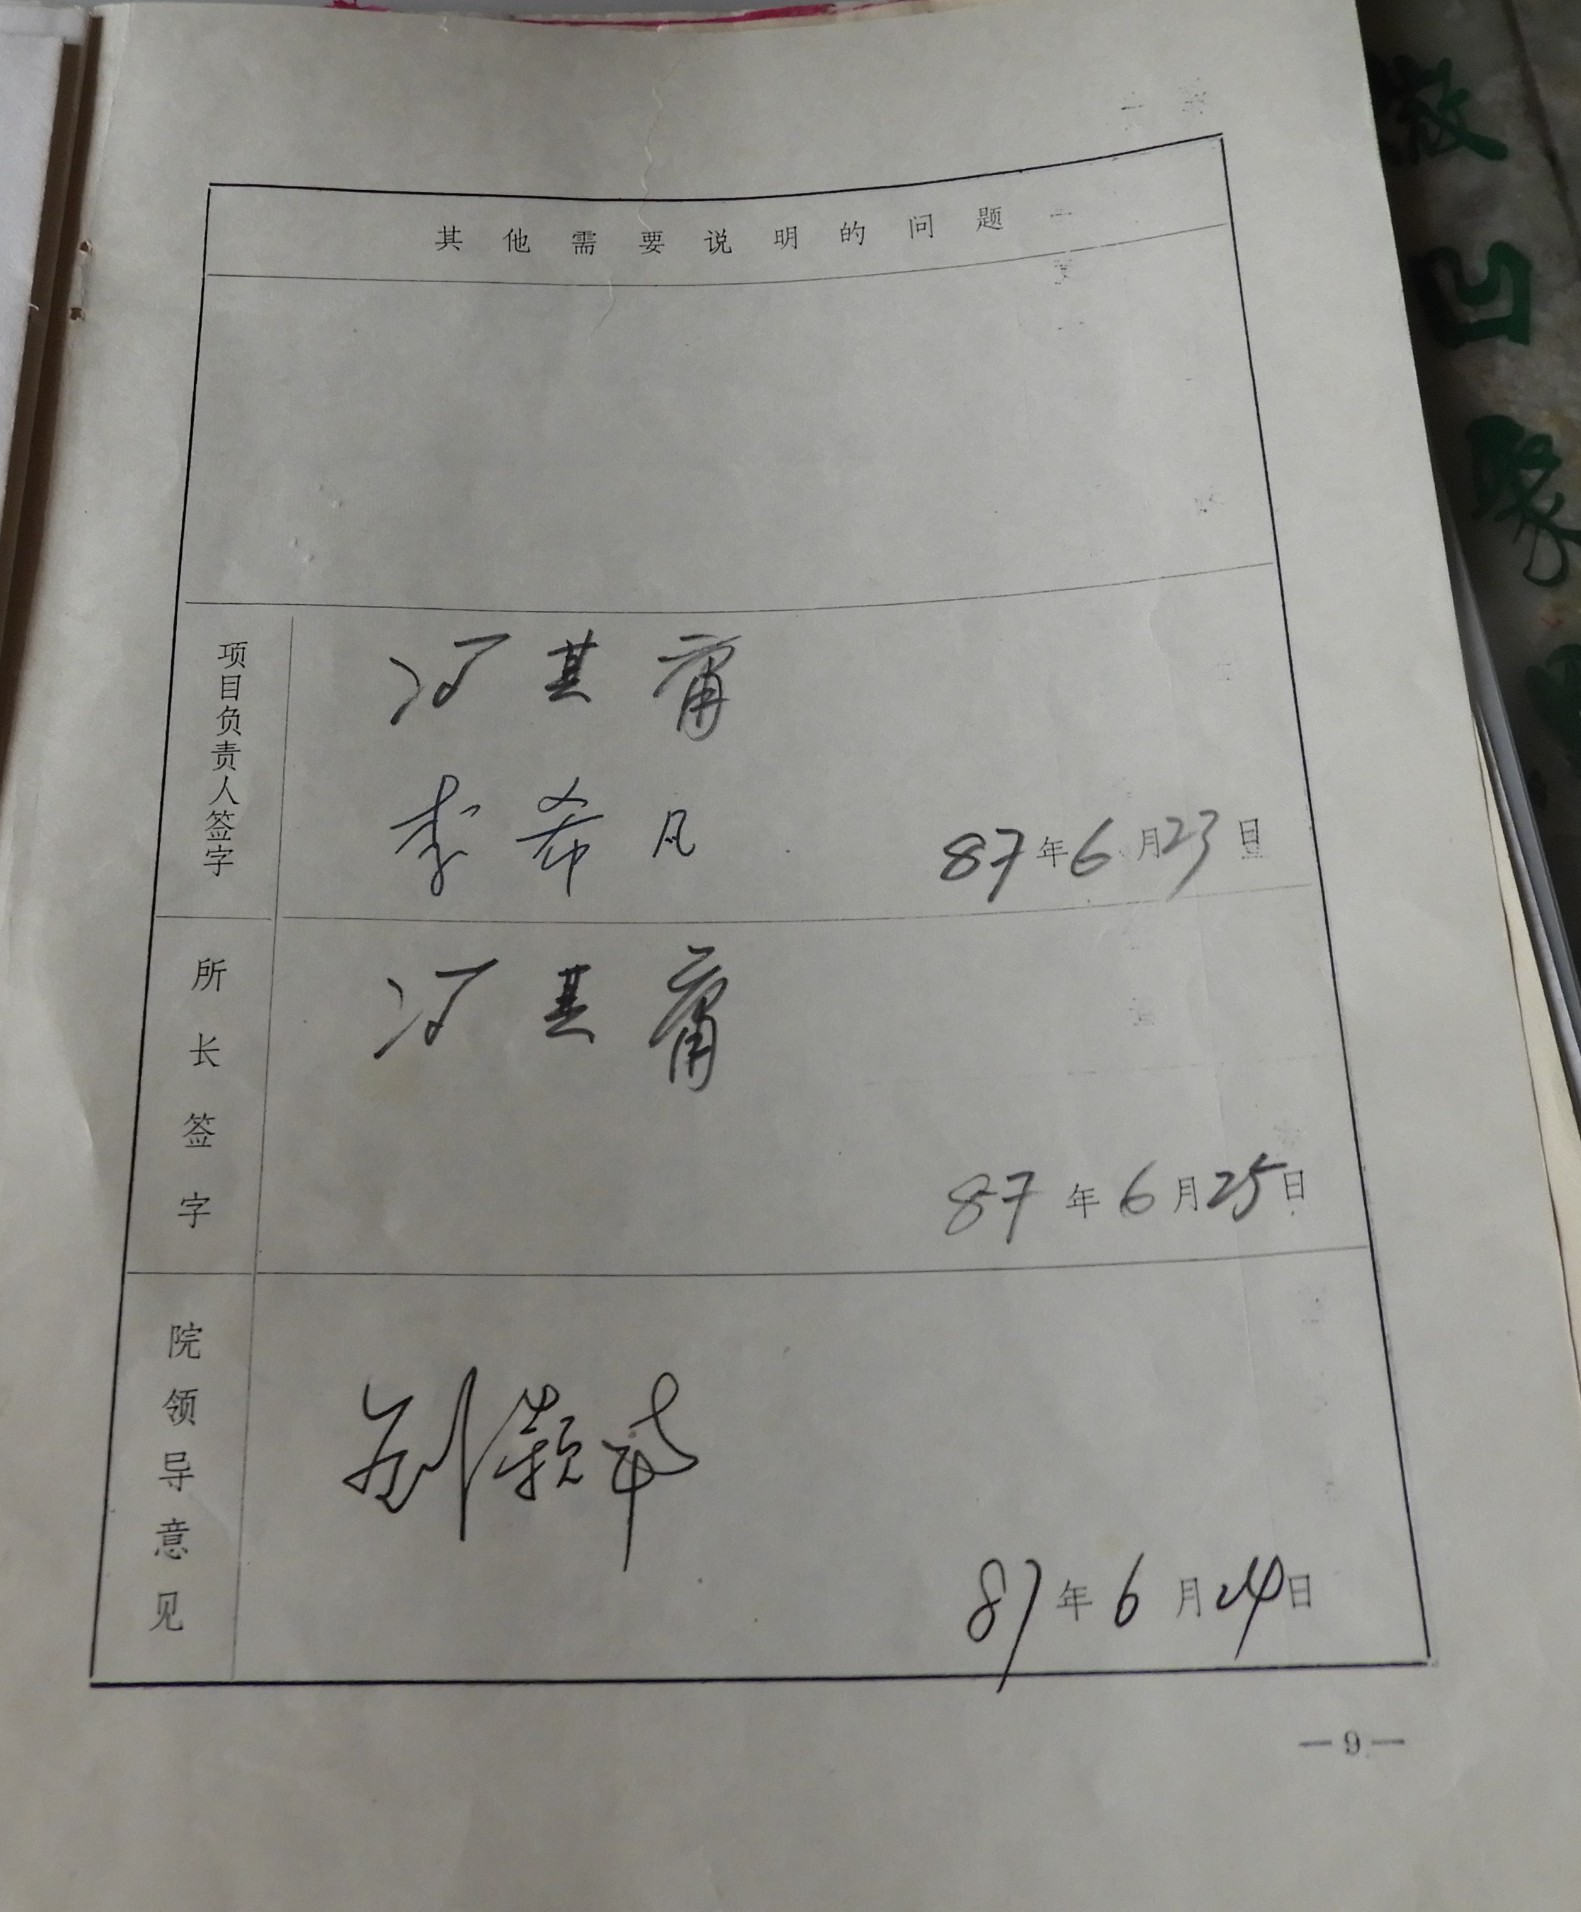 其他需要说明的问题
项目负责人签字
冯其庸
李希凡
87年6月23日
所长签字
冯其庸
87年6月25日
院领导意见
刘颖南
87年6月24日
—9—
凹